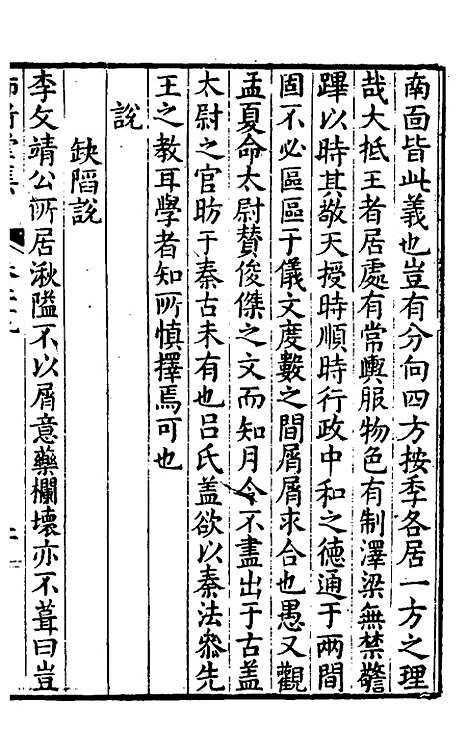 南面皆此義也豈有分向四方按季各居一方之理
哉大抵王者居處有常輿服物色有制澤梁無禁警
蹕以時其敬天授時順時行政中和之德通于兩間
固不必區區于儀文度數之間屑屑求合也愚又觀
孟夏命太尉贊俊傑之文而知月令不盡出于古蓋
太尉之官昉于秦古未有也呂氏蓋欲以秦法叅先
王之教耳學者知所慎擇焉可也
說
缺陷說
李文靖公所居湫隘不以屑意藥欄壞亦不葺曰豈